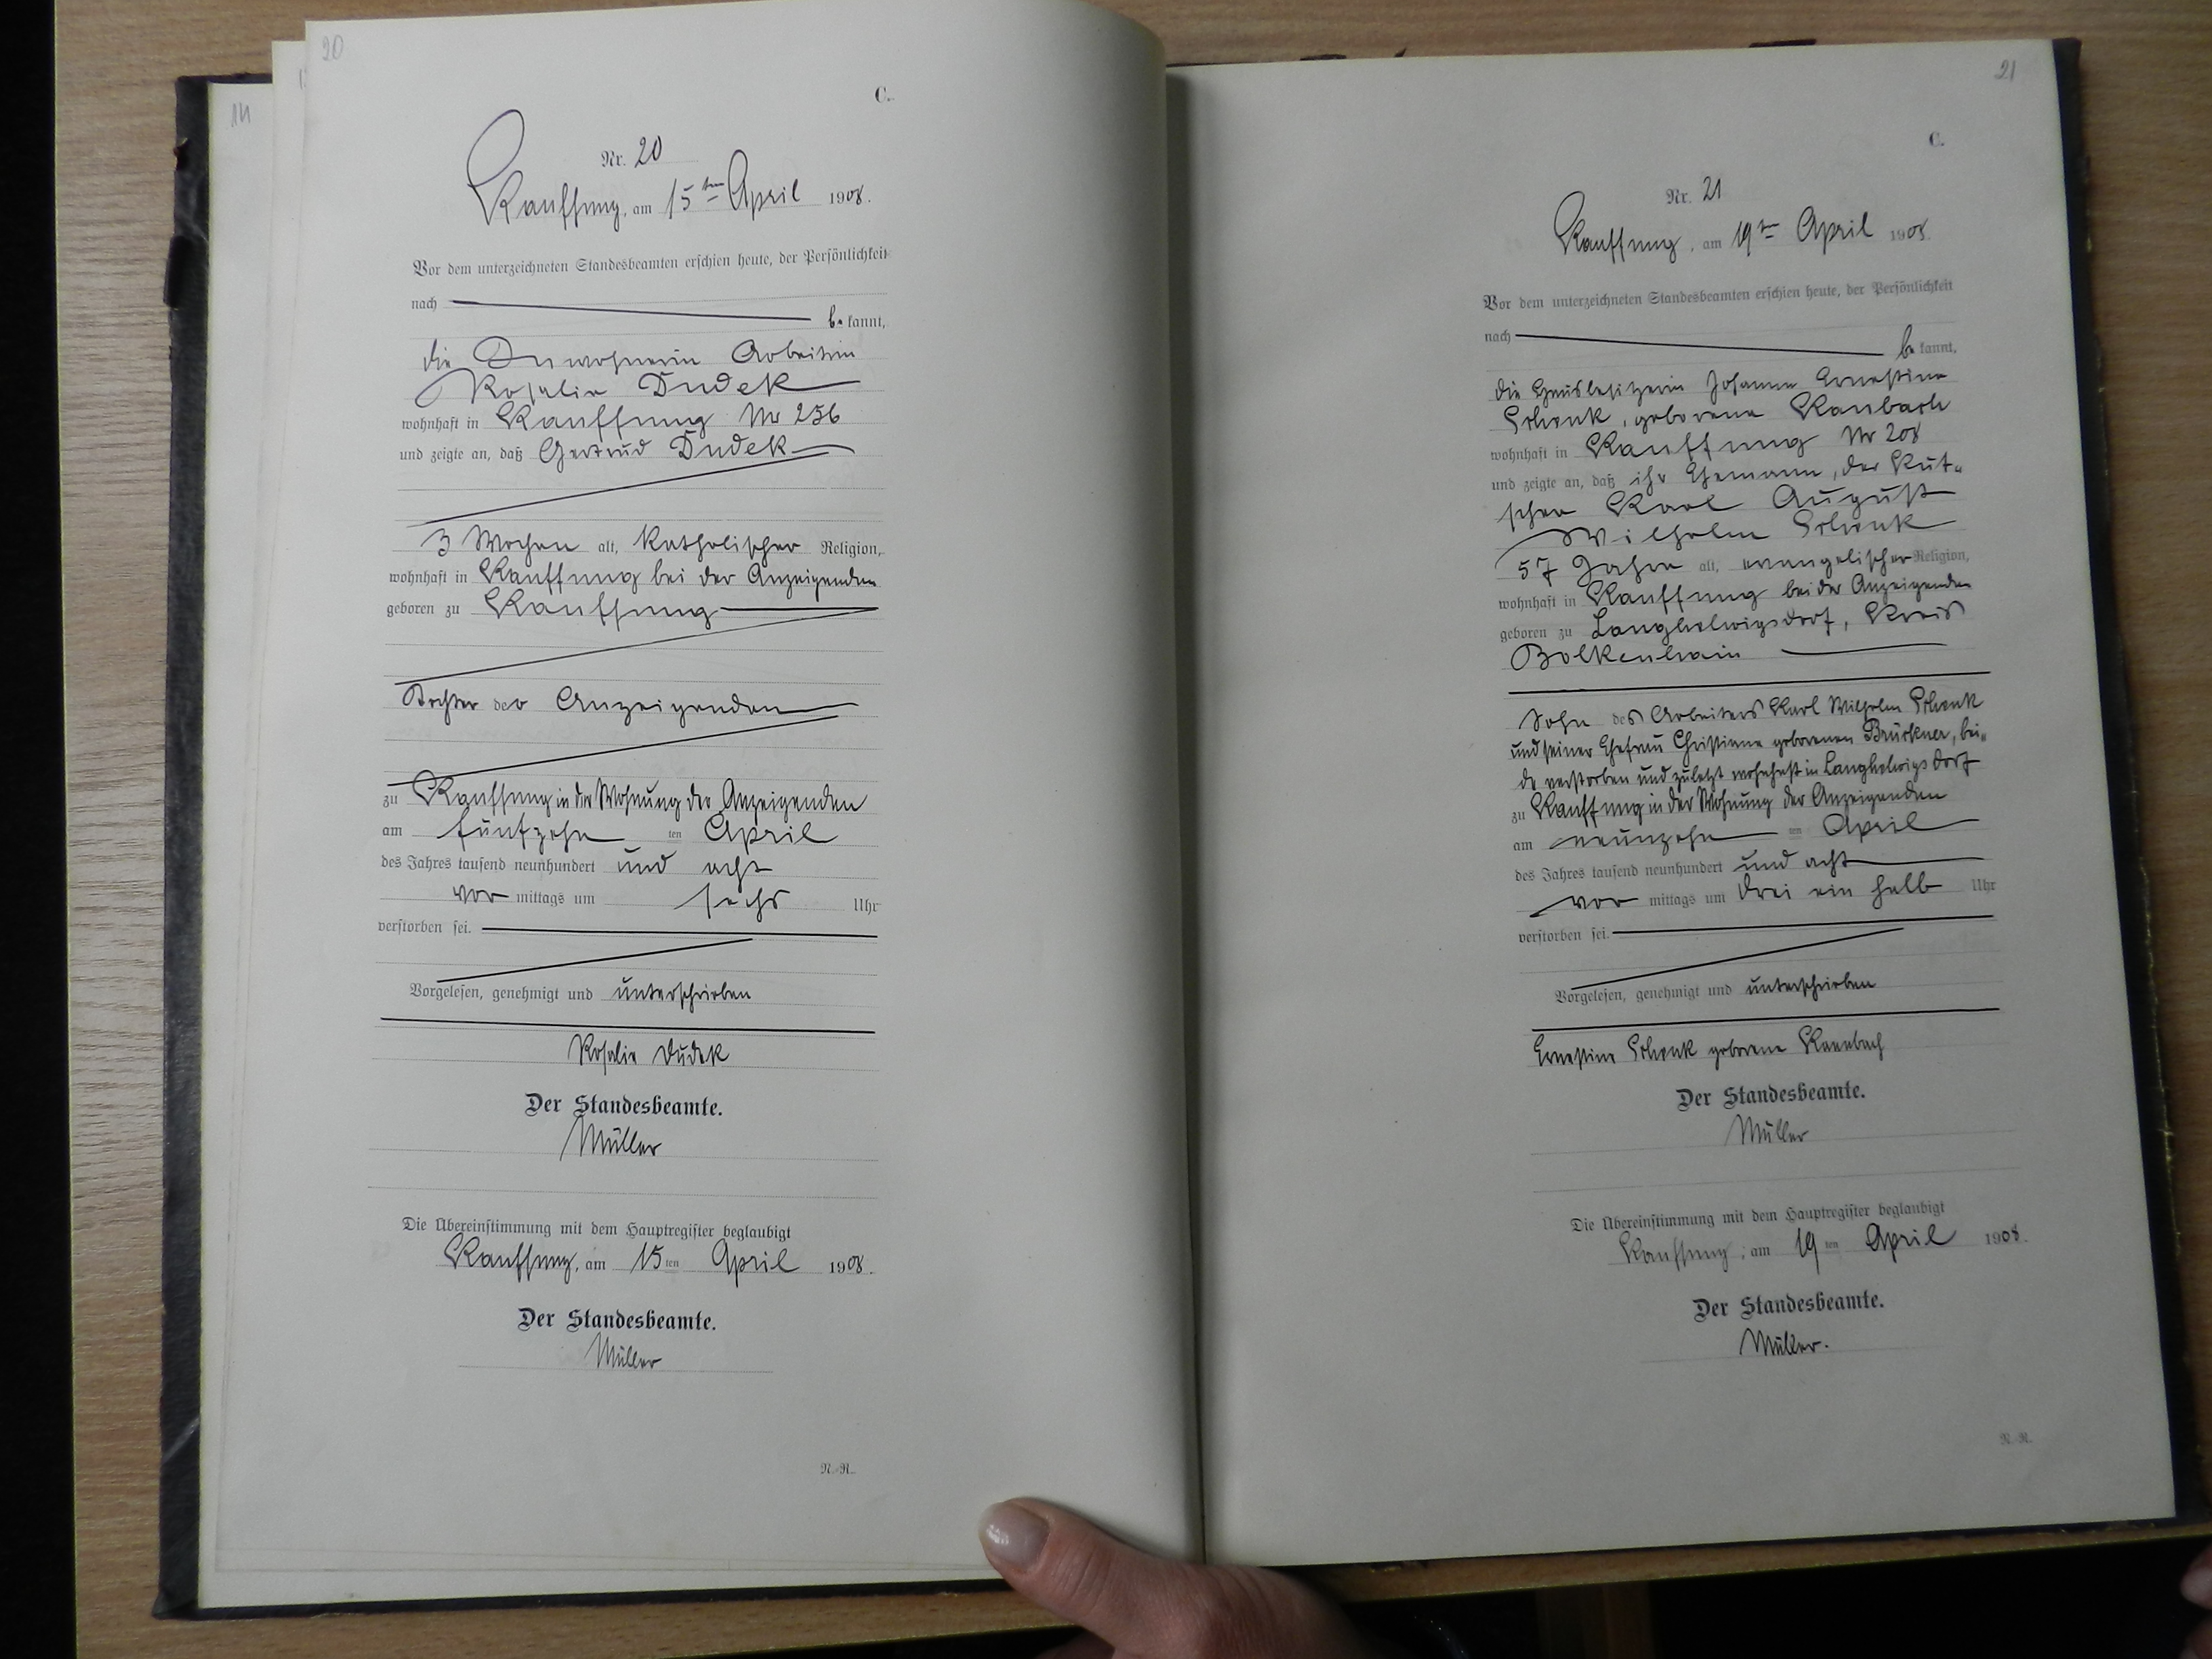 14
20
C.
Nr. 20
Kauffung, am 15ten April 1908.
Vor dem unterzeichneten Standesbeamten erschien heute, der Persönlichkeit
nach
be kannt,
die Inwohnerin Arbeiterin
Rosalie Dudek
wohnhaft in Kauffung Nr 256
und zeigte an, daß Gertrud Dudek
3 Wochen alt, katholischer Religion,
wohnhaft in Kauffung bei der Anzeigenden
geboren zu Kauffung
Tochter der Anzeigenden
zu Kauffung in der Wohnung der Anzeigenden
am fünfzehn ten April
des Jahres tausend neunhundert und acht
vor mittags um sechs Uhr
verstorben sei.
Vorgelesen, genehmigt und unterschrieben
Rosalie Dudek
Der Standesbeamte.
Müller
Die Übereinstimmung mit dem Hauptregister beglaubigt
Kauffung, am 15ten April 1908.
Der Standesbeamte.
Müller
N.-R.
21
C.
Nr. 21
Kauffung, am 19ten April 1908.
Vor dem unterzeichneten Standesbeamten erschien heute, der Persönlichkeit
nach
be kannt,
die Hausbesitzerin Johanne Ernestine
Schenk, geborene Raubach
wohnhaft in Kauffung Nr 208
und zeigte an, daß ihr Ehemann, der Kut-
scher Karl August
Wilhelm Schenk
57 Jahre alt, evangelischer Religion,
wohnhaft in Kauffung bei der Anzeigenden
geboren zu Langhelwigsdorf, Kreis
Bolkenhain
Sohn des Arbeiters Karl Wilhelm Schenk
und seiner Ehefrau Christiane geborenen Brückner, bei-
de verstorben und zuletzt wohnhaft in Langhelwigsdorf
zu Kauffung in der Wohnung der Anzeigenden
am neunzehn ten April
des Jahres tausend neunhundert und acht
vor mittags um drei ein halb Uhr
verstorben sei.
Vorgelesen, genehmigt und unterschrieben
Ernestine Schenk geborene Raubach
Der Standesbeamte.
Müller
Die Übereinstimmung mit dem Hauptregister beglaubigt
Kauffung, am 19ten April 1908.
Der Standesbeamte.
Müller.
N.-R.